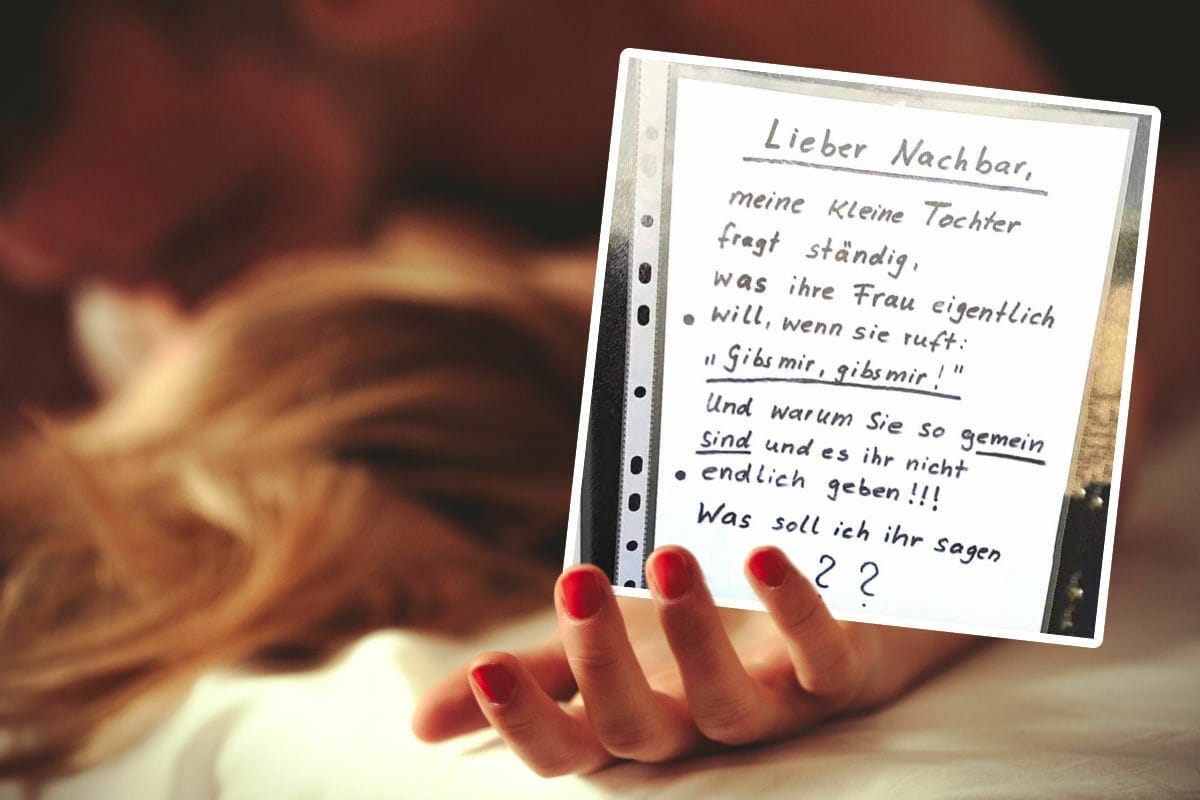 Lieber Nachbar,
meine kleine Tochter
fragt ständig,
was ihre Frau eigentlich
will, wenn sie ruft:
"Gibs mir, gibs mir!"
Und warum Sie so gemein
sind und es ihr nicht
endlich geben!!!
Was soll ich ihr sagen
??